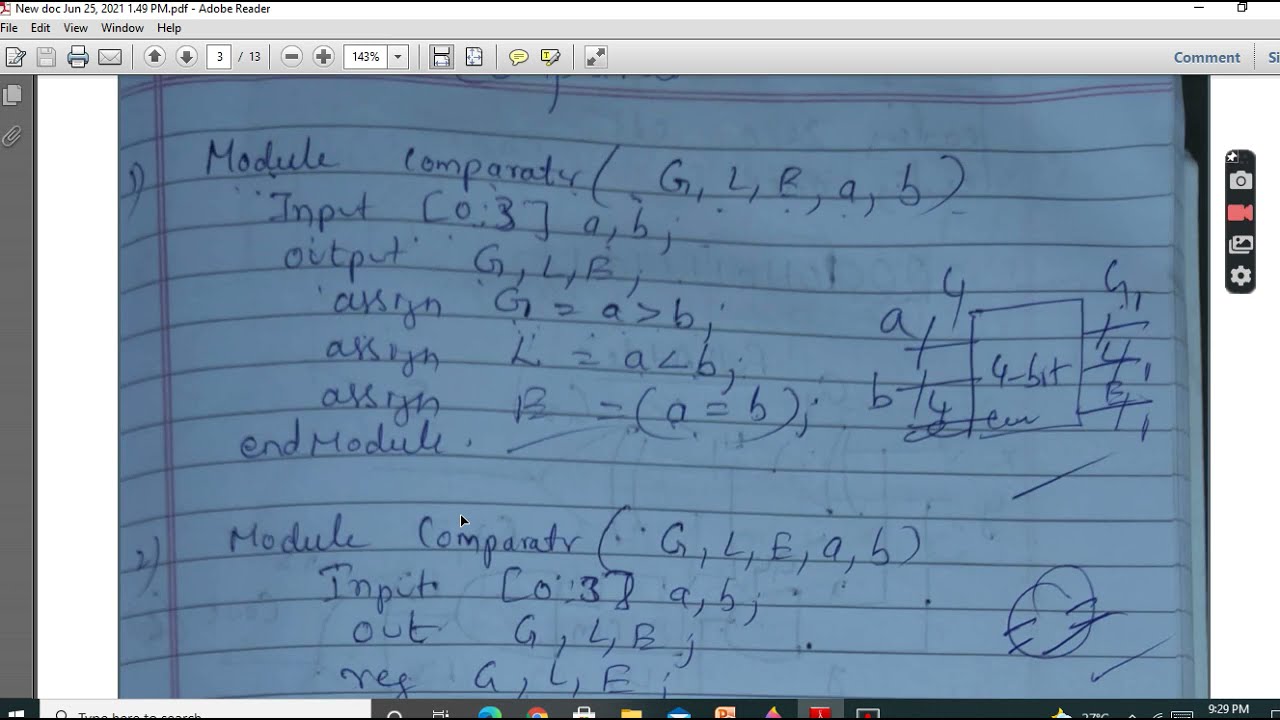 New doc Jun 25, 2021 1.49 PM.pdf - Adobe Reader
File Edit View Window Help
3 / 13 143% Comment
1) Module Comparatr ( G, L, E, a, b )
Input [0:3] a, b;
output G, L, E;
assign G = a > b;
assign L = a < b;
assign E = (a = b);
endModule.
a 4 G 1
4-bit
b 4 L 1
E 1
2) Module Comparatr ( G, L, E, a, b )
Input [0:3] a, b;
out G, L, E;
reg G, L, E;
Type here to search
27°C
9:29 PM